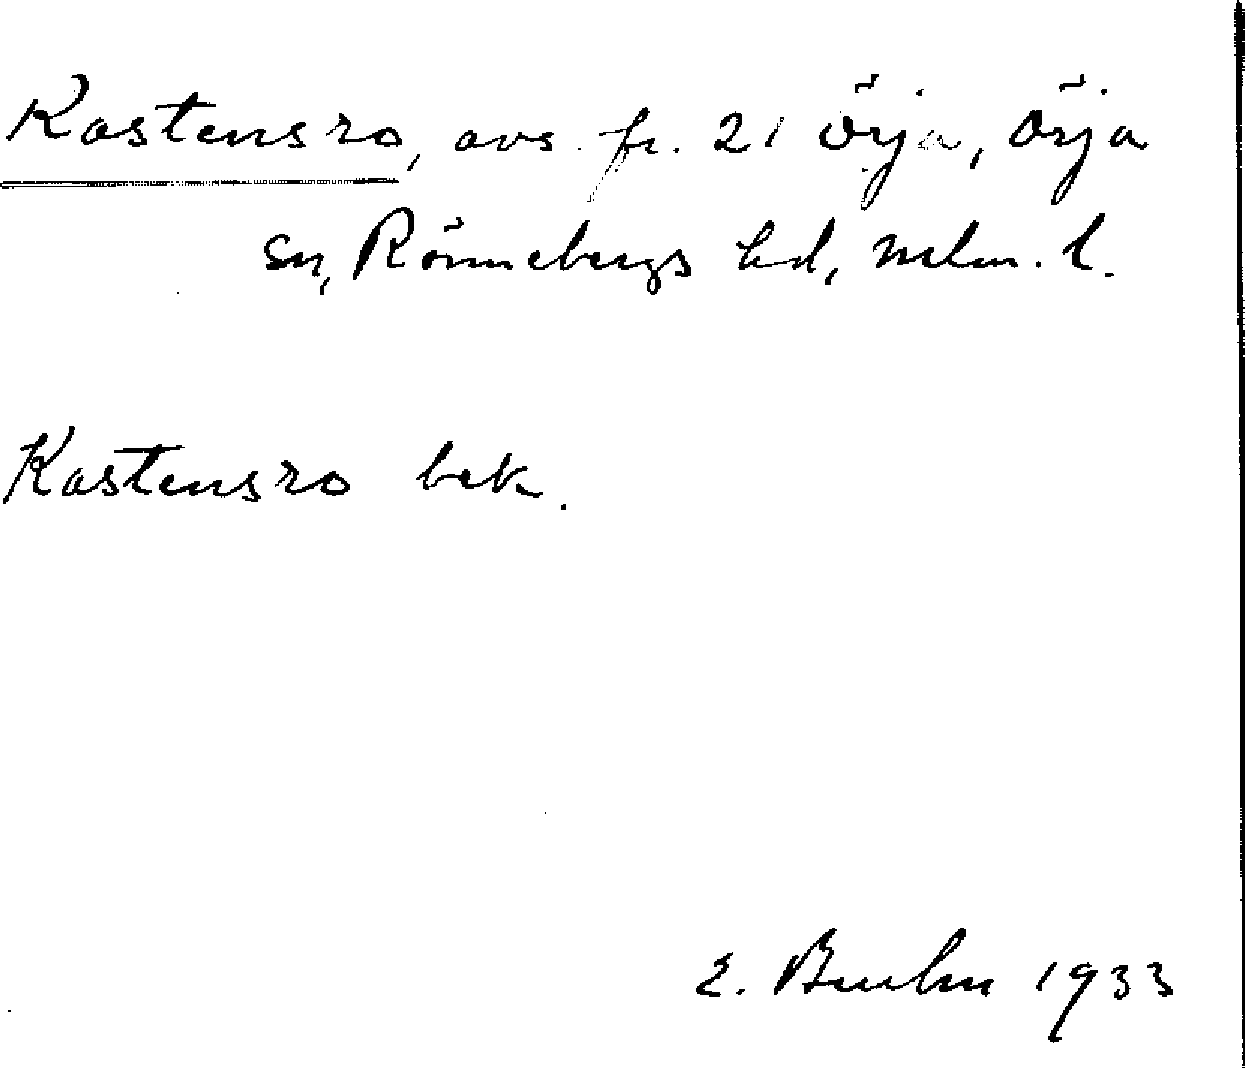 Kastensro, avs. fr. 21 Örja, Örja
sn, Rönnebergs hd, Mlm. l.
Kastensro bek.
E. Bruhn 1933